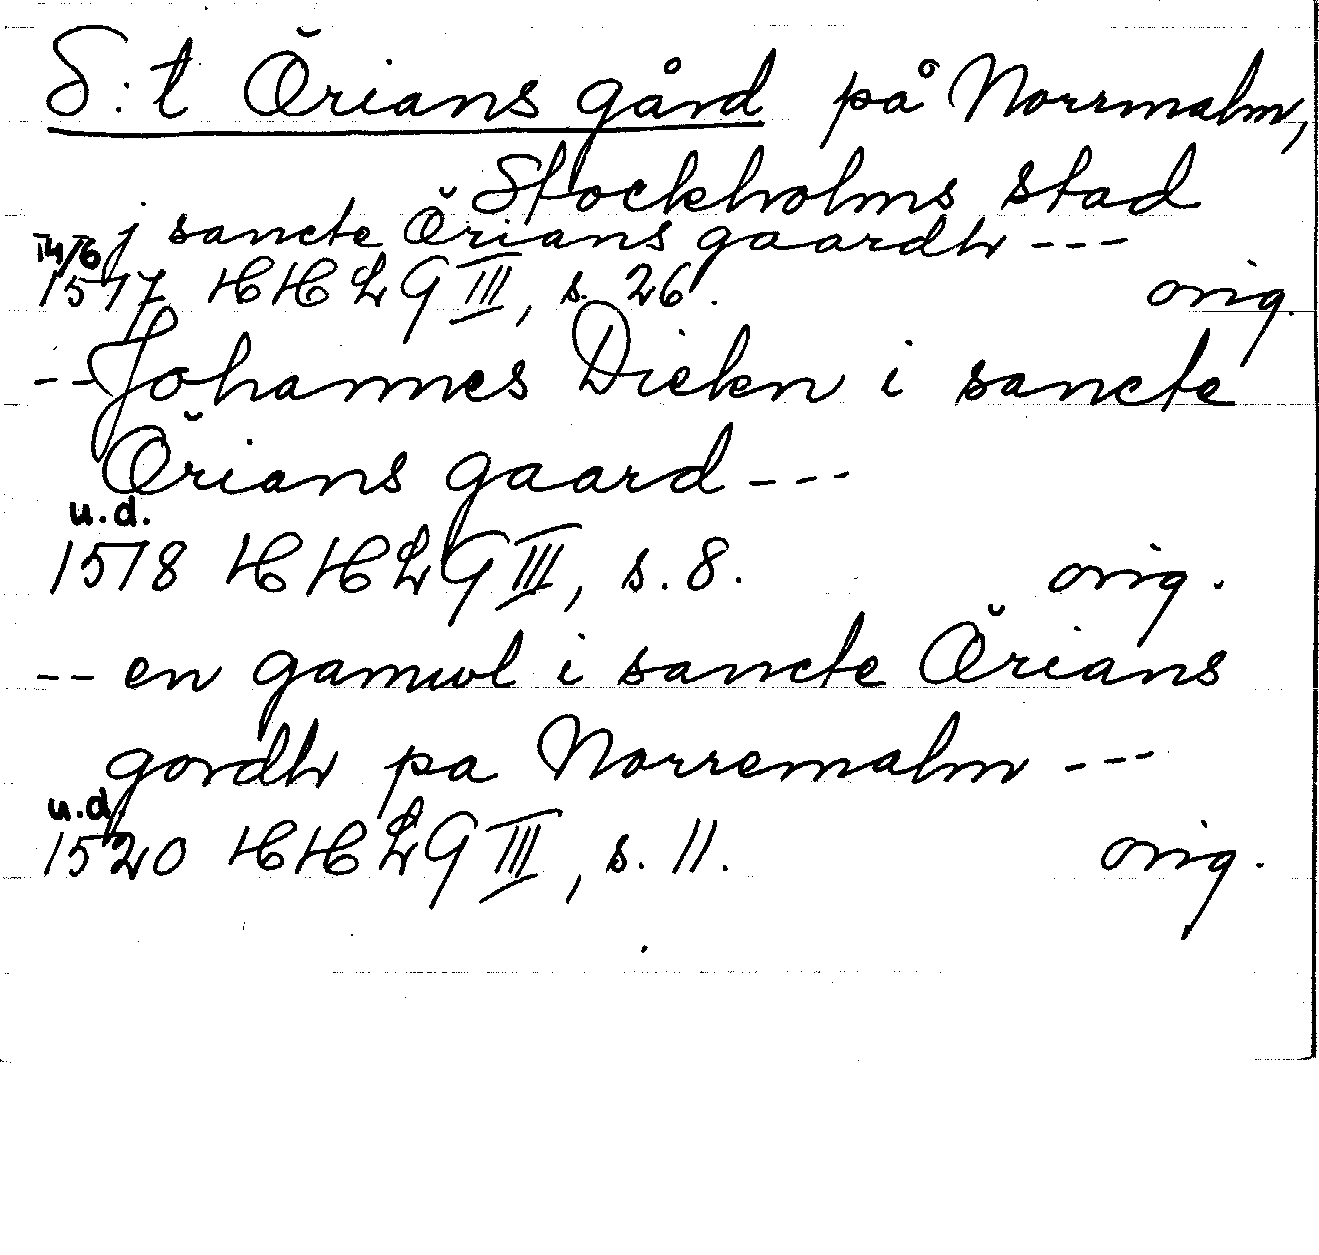 S:t Örians gård på Norrmalm,
Stockholms stad
j sancte Örians gaardh ---
14/6
1517 HHLG III, s. 26. orig.
-- Johannes Dieken i sancte
Örians gaard ---
u.d.
1518 HHLG III, s. 8. orig.
-- en gamwl i sancte Örians
gordh pa Norremalm ---
u.d.
1520 HHLG III, s. 11. orig.